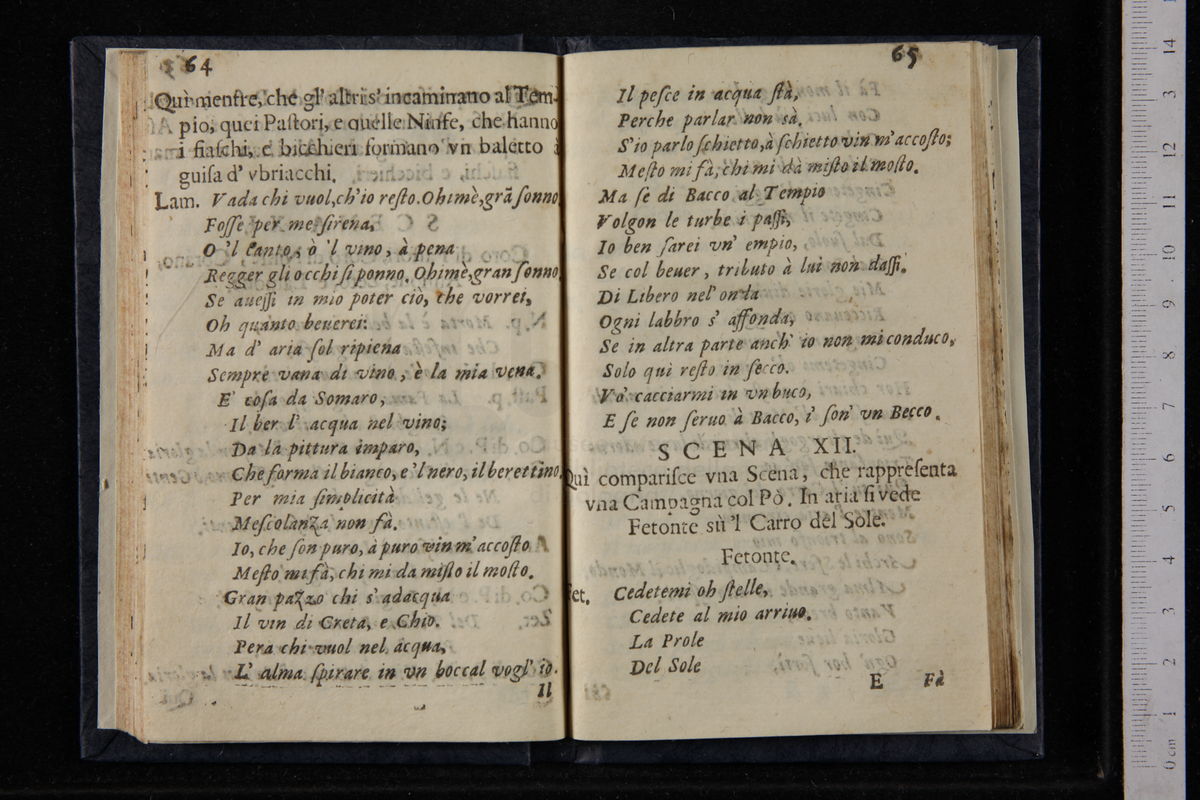 64
Quì mentre, che gl' altri s' incaminano al Tem-
pio, quei Pastori, e quelle Ninfe, che hanno
i fiaschi, e bicchieri formano vn baletto à
guisa d' vbriacchi.
Lam. Vada chi vuol, ch' io resto. Ohimè, grã sonno
Fosse per me sirena,
O 'l canto, ò 'l vino, à pena
Regger gli occhi si ponno. Ohimè, gran sonno
Se auessi in mio poter ciò, che vorrei,
Oh quanto beuerei:
Ma d' aria sol ripiena
Sempre vana di vino, è la mia vena.
E' cosa da Somaro,
Il ber l' acqua nel vino;
Da la pittura imparo,
Che forma il bianco, e 'l nero, il berettino.
Per mia simplicità
Mescolanza non fà.
Io, che son puro, à puro vin m' accosto
Mesto mi fà, chi mi da misto il mosto.
Gran pazzo chi s' adacqua
Il vin di Creta, e Chio.
Pera chi vuol nel acqua,
L' alma spirare in vn boccal vogl' io.
Il
65
Il pesce in acqua stà,
Perche parlar non sà.
S' io parlo schietto, à schietto vin m' accosto;
Mesto mi fà, chi mi dà misto il mosto.
Ma se di Bacco al Tempio
Volgon le turbe i passi,
Io ben sarei vn' empio,
Se col beuer, tributo à lui non dassi.
Di Libero nel' onda
Ogni labbro s' affonda,
Se in altra parte anch' io non mi conduco,
Solo quì resto in secco.
Vò cacciarmi in vn buco,
E se non seruo à Bacco, i' son' vn Becco.
SCENA XII.
Quì comparisce vna Scena, che rappresenta
vna Campagna col Pò. In aria si vede
Fetonte sù 'l Carro del Sole.
Fetonte.
Fet. Cedetemi oh stelle,
Cedete al mio arriuo.
La Prole
Del Sole
E Fà